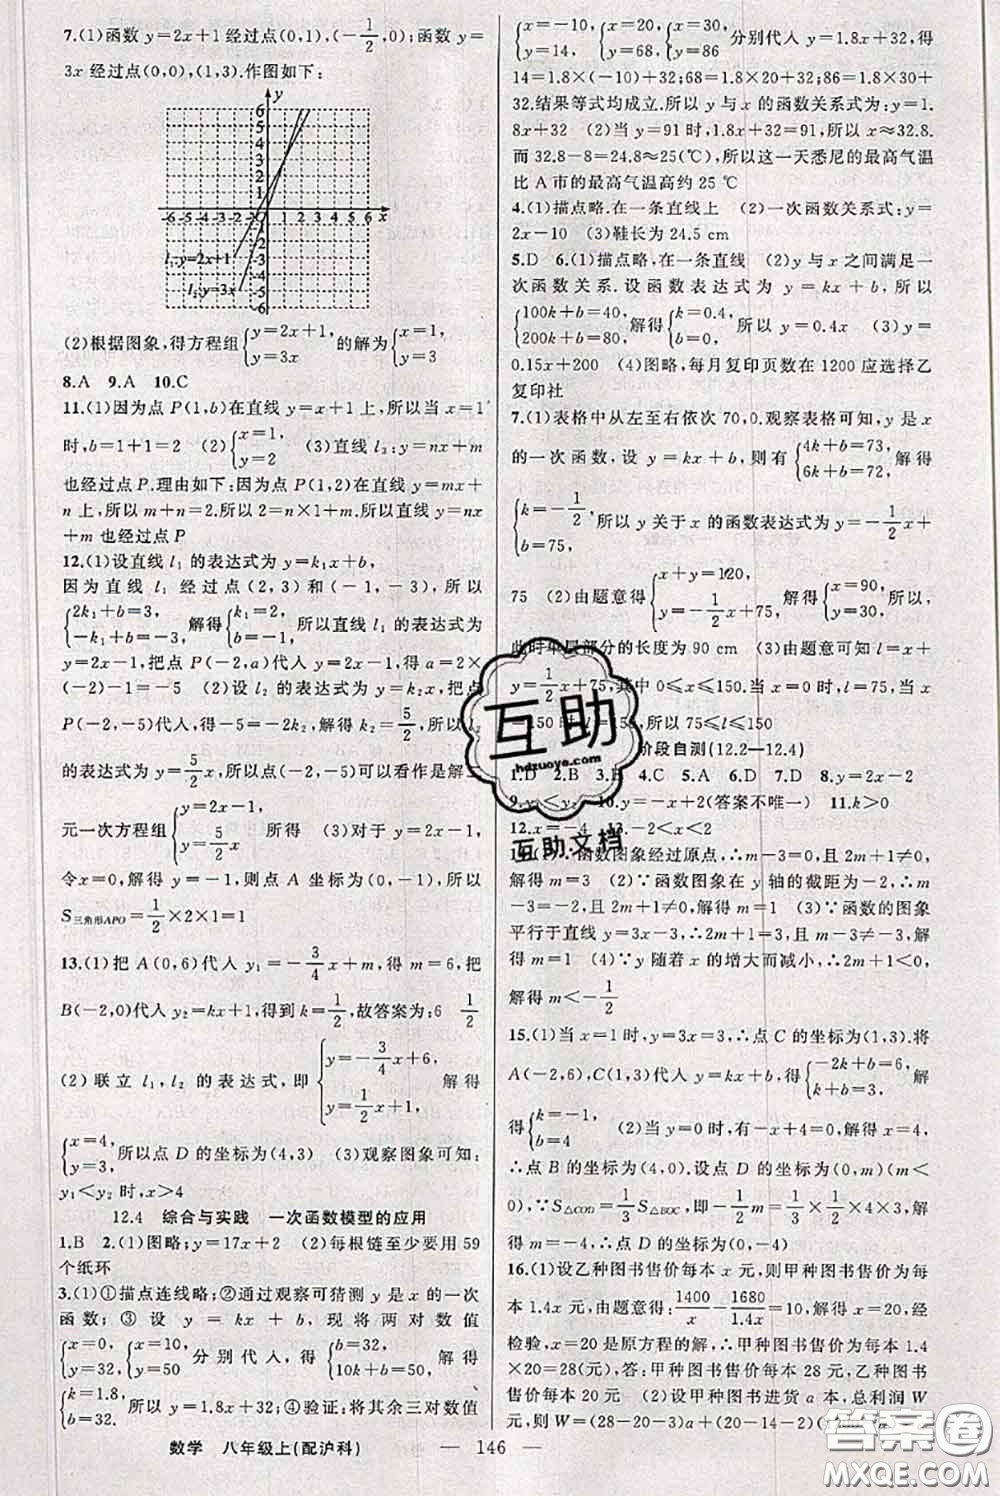 7.(1)函数 y=2x+1经过点(0,1),(-1/2,0);函数 y=
3x 经过点(0,0),(1,3).作图如下:
y
6
5
4
3
2
1
-6 -5 -4 -3 -2 -1 O 1 2 3 4 5 6 x
-1
-2
-3
-4
-5
-6
l₁:y=2x+1
l₂:y=3x
(2)根据图象,得方程组{y=2x+1, y=3x 的解为{x=1, y=3
8.A 9.A 10.C
11.(1)因为点 P(1,b)在直线 y=x+1 上,所以当 x=1
时,b=1+1=2 (2){x=1, y=2 (3)直线 l₃:y=nx+m
也经过点 P.理由如下:因为点 P(1,2)在直线 y=mx+
n 上,所以 m+n=2.所以 2=n×1+m.所以直线 y=nx
+m 也经过点 P
12.(1)设直线 l₁ 的表达式为 y=k₁x+b,
因为直线 l₁ 经过点(2,3)和(-1,-3),所以
{2k₁+b=3, -k₁+b=-3, 解得{k₁=2, b=-1, 所以直线 l₁ 的表达式为
y=2x-1,把点 P(-2,a)代入得,解得 a=2×
(-2)-1=-5 (2)设 l₂ 的表达式为 y=k₂x,把点
P(-2,-5)代入,得-5=-2k₂,解得 k₂=5/2,所以 l₂
的表达式为 y=5/2x,所以点(-2,-5)可以看作是解二
元一次方程组{y=2x-1, y=5/2x 所得 (3)对于 y=2x-1,
令x=0,解得 y=-1,则点 A 坐标为(0,-1),所以
S三角形APO=1/2×2×1=1
13.(1)把 A(0,6)代入 y₁=-3/4x+m,得 m=6,把
B(-2,0)代入 y₂=kx+1,得到 k=1/2,故答案为:6 1/2
(2)联立 l₁,l₂ 的表达式,即{y=-3/4x+6, y=1/2x+1, 解得
{x=4, y=3, 所以点 D 的坐标为(4,3) (3)观察图象可知:
y₁<y₂时,x>4
12.4 综合与实践 一次函数模型的应用
1.B 2.(1)图略;y=17x+2 (2)每根链至少要用59
个纸环
3.(1)①描点连线略;②通过观察可猜测 y 是 x 的一次
函数;③设 y=kx+b,现将两对数值
{x=0, y=32, {x=10, y=50 分别代入,得{b=32, 10k+b=50, 解得
{k=1.8, b=32. 所以 y=1.8x+32;④验证:将其余三对数值
{x=-10, y=14, {x=20, y=68, {x=30, y=86 分别代入 y=1.8x+32,得
14=1.8×(-10)+32;68=1.8×20+32;86=1.8×30+
32.结果等式均成立.所以 y 与 x 的函数关系式为:y=1.
8x+32 (2)当 y=91 时,1.8x+32=91,所以 x≈32.8.
而 32.8-8=24.8≈25(℃),所以这一天悉尼的最高气温
比 A 市的最高气温高约 25 ℃
4.(1)描点略.在一条直线上 (2)一次函数关系式:y=
2x-10 (3)鞋长为 24.5 cm
5.D 6.(1)描点略,在一条直线 (2)y 与 x 之间满足一
次函数关系.设函数表达式为 y=kx+b,所以
{100k+b=40, 200k+b=80, 解得{k=0.4, b=0, 所以 y=0.4x (3)y=
0.15x+200 (4)图略,每月复印页数在 1200 应选择乙
复印社
7.(1)表格中从左至右依次 70,0.观察表格可知,y 是 x
的一次函数,设 y=kx+b,则有{4k+b=73, 6k+b=72, 解得
{k=-1/2, b=75, 所以 y 关于 x 的函数表达式为 y=-1/2x+
75 (2)由题意得{x+y=120, y=-1/2x+75, 解得{x=90, y=30, 所以
此时单层部分的长度为 90 cm (3)由题意可知 l=x+
y=1/2x+75,其中 0≤x≤150.当 x=0 时,l=75,当 x
=150 时,l=150,所以 75≤l≤150
阶段自测(12.2—12.4)
1.D 2.B 3.B 4.C 5.A 6.D 7.D 8.y=2x-2
9.y<y 10.y=-x+2(答案不唯一) 11.k>0
12.x=-4 13.-2<x<2
14.(1)∵函数图象经过原点,∴m-3=0,且 2m+1≠0,
解得 m=3 (2)∵函数图象在 y 轴的截距为-2,∴m
-3=-2,且 2m+1≠0,解得 m=1 (3)∵函数的图象
平行于直线 y=3x-3,∴2m+1=3,且 m-3≠-3,解
得 m=1 (4)∵y 随着 x 的增大而减小,∴2m+1<0,
解得 m<-1/2
15.(1)当 x=1 时,y=3x=3,∴点 C 的坐标为(1,3).将
A(-2,6),C(1,3)代入 y=kx+b,得{-2k+b=6, k+b=3, 解
得{k=-1, b=4 (2)当 y=0 时,有-x+4=0,解得 x=4,
∴点 B 的坐标为(4,0).设点 D 的坐标为(0,m)(m<
0),∵S△COD=1/3S△BOC,即-1/2m=1/3×1/2×4×3,解
得 m=-4,∴点 D 的坐标为(0,-4)
16.(1)设乙种图书售价每本 x 元,则甲种图书售价为每
本 1.4x 元.由题意得:1400/x-1680/1.4x=10,解得 x=20,经
检验,x=20 是原方程的解,∴甲种图书售价为每本 1.4
×20=28(元),答:甲种图书售价每本 28 元,乙种图书售
价每本 20 元 (2)设甲种图书进货 a 本,总利润 W
元,则 W=(28-20-3)a+(20-14-2)
数学 八年级上(配沪科) — 146 —
互助
hdzuoye.com
互助文档
答案圈
MXQE.COM